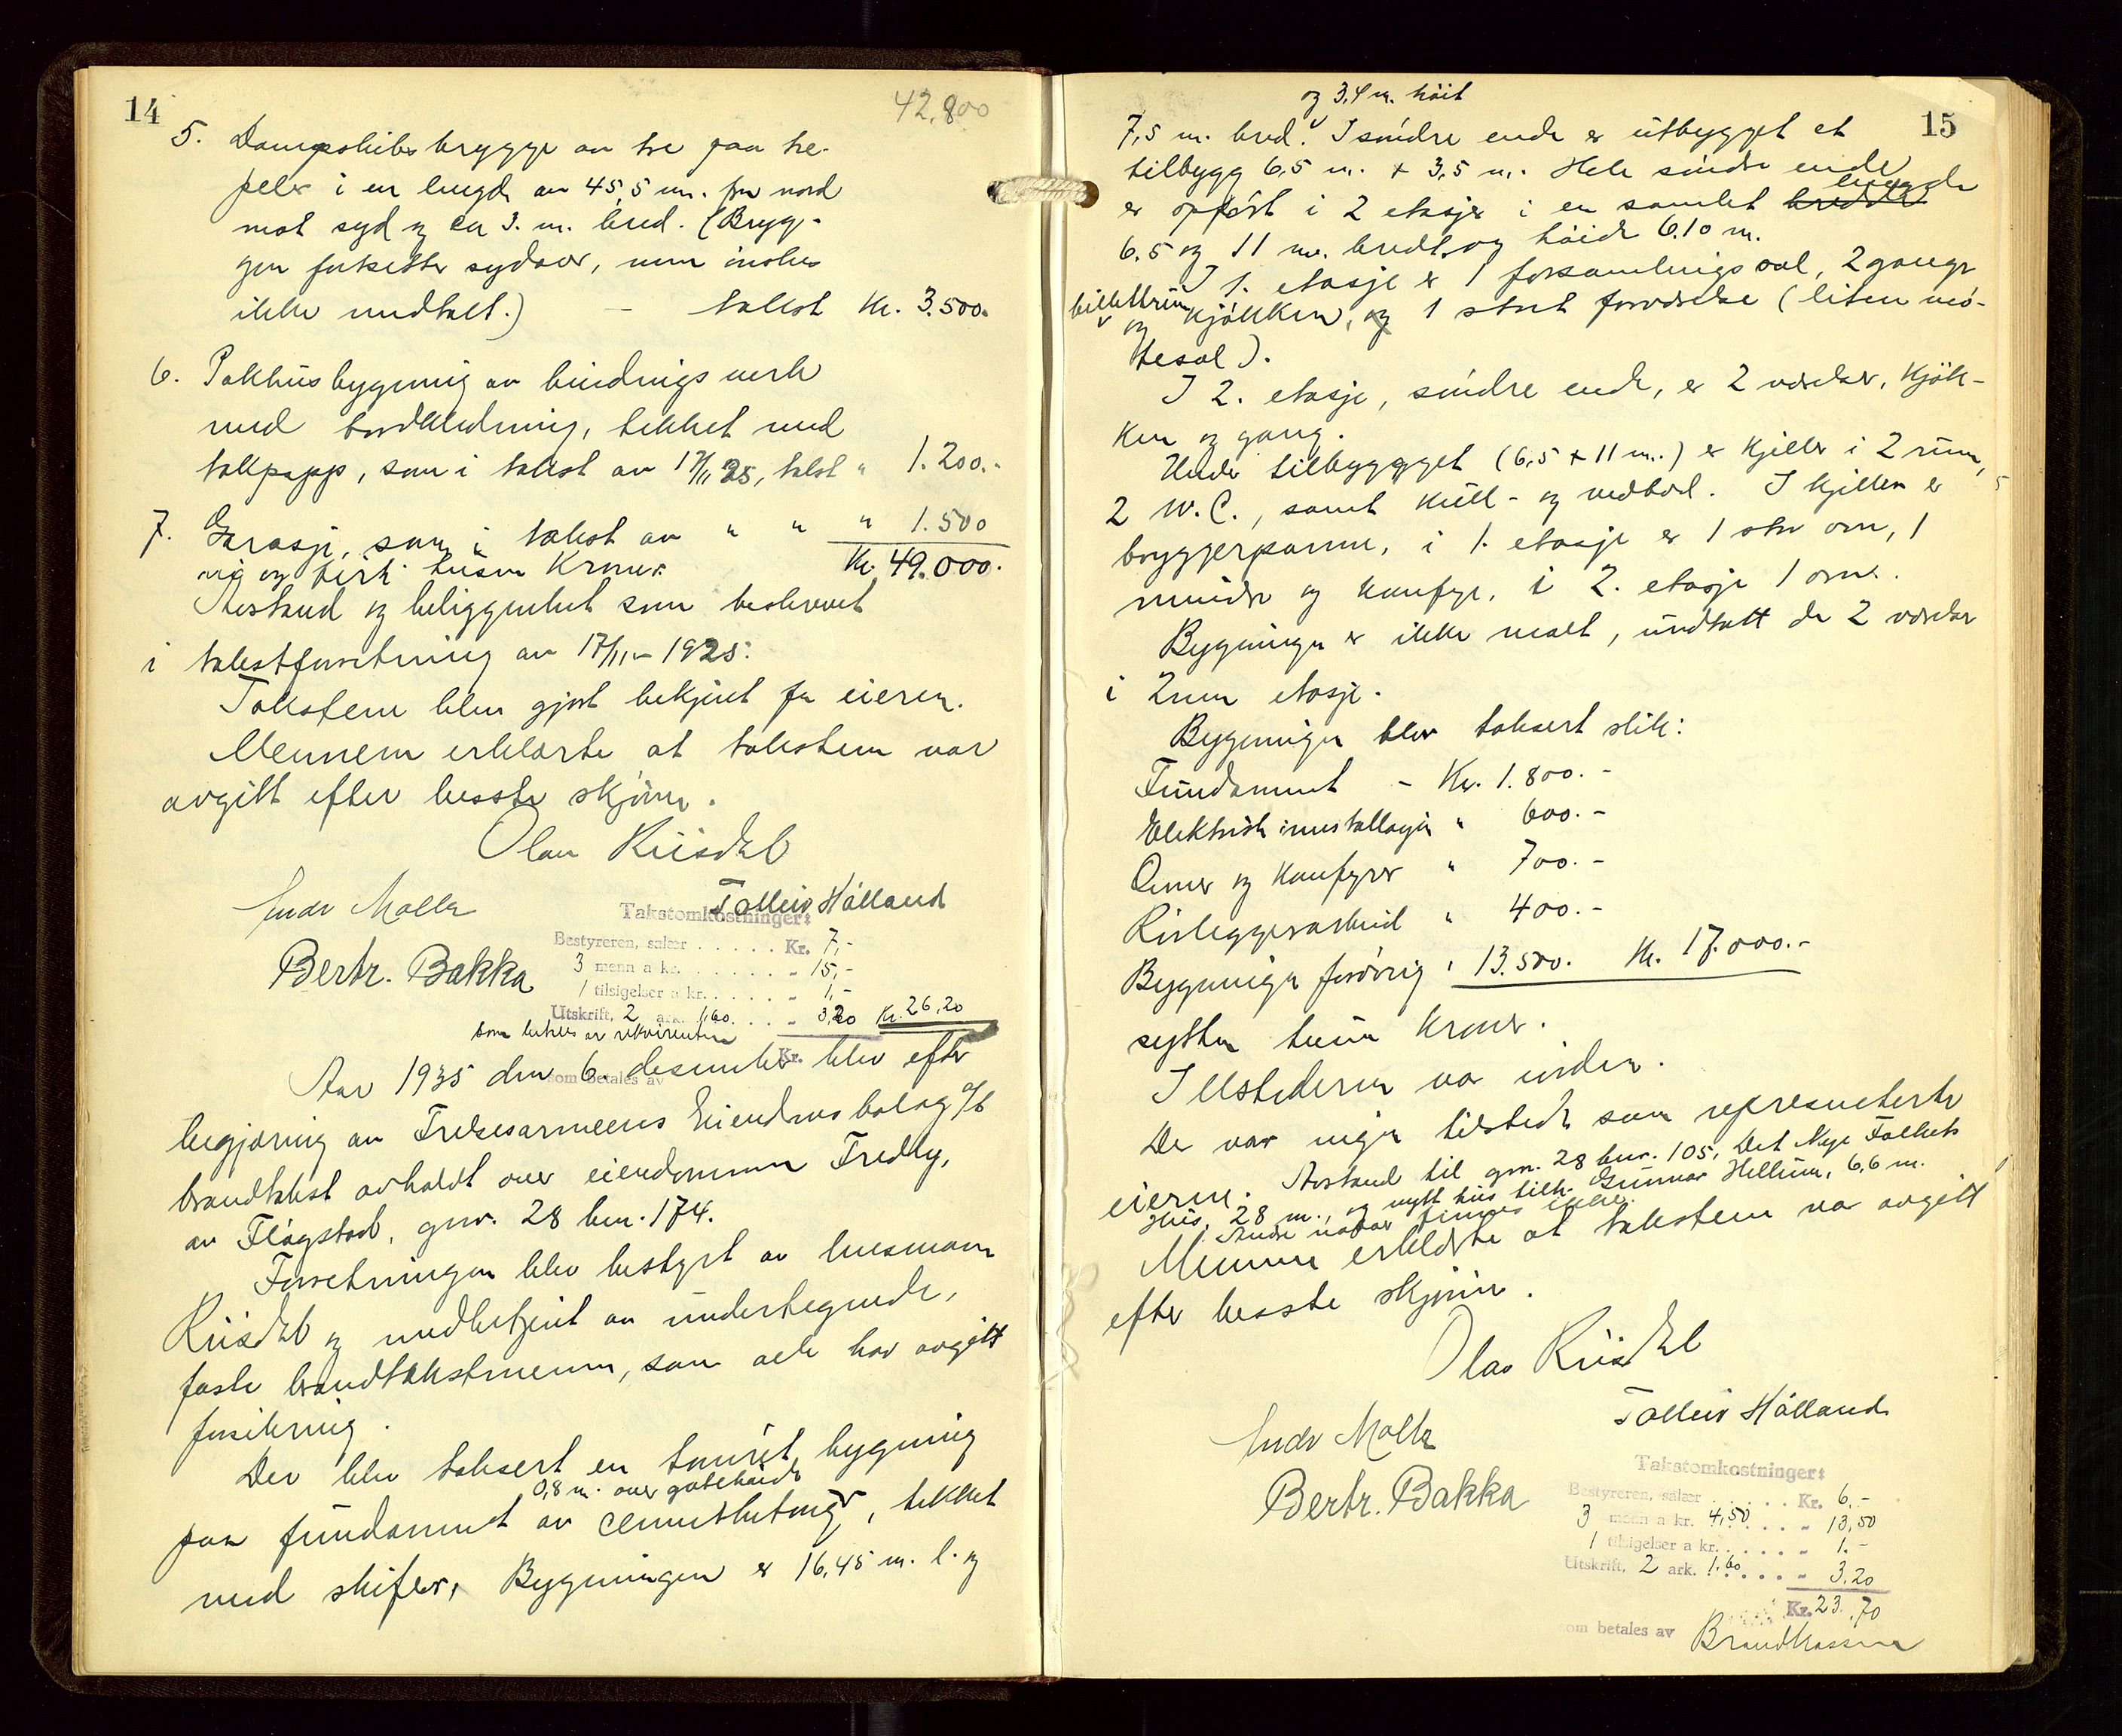 14
42.800
5. Dampskibsbrygge av tre paa tre-
peler i en lengde av 45,5 m. fra nord
mot syd og ca 3. m. bred. (Bryg-
gen fortsetter sydover, men ønskes
ikke medtatt.) — takst Kr. 3.500.
6. Pakhusbygning av bindingsverk
med bordkledning, tekket med
takpapp, som i takst av 17/11 25, takst " 1.200.-
7. Garasje, som i takst av " " " 1.500
ni og førti tusen Kroner. Kr. 49.000.
Avstand og beliggenhet som beskrevet
i takstforretning av 17/11- 1925.
Taksten blev gjort bekjent for eieren.
Mennene erklærte at taksten var
avgitt efter besste skjønn.
Olav Riisdal
Endr Molla
Tolleiv Hålland
Bertr. Bakka
Takstomkostninger:
Bestyreren, salær . . . . . Kr. 7,-
3 menn a kr. . . . . . . . „ 15,-
1 tilsigelser a kr. . . . . . „ 1,-
Utskrift, 2 ark. 1,60. . . . „ 3,20 Kr. 26,20
som betales av rekvirenten
Kr.
som betales av
Aar 1935 den 6. desember blev efter
begjæring av Frelsesarmeens Eiendomsbolag A/S
brandtakst avholdt over eiendommen Fredly,
av Flågstad, gnr. 28 bnr. 174.
Forretningen blev bestyrt av lensmann
Riisdal og medbetjent av undertegnede,
faste brandtakstmenn, som alle har avgitt
forsikring.
Der blev taksert en tømret bygning
0,8 m. over gatehøide
paa fundament av cementbetong, tekket
med skifer, Bygningen er 16,45 m. l. og
15
og 3,4 m. høit
7,5 m. bred. I søndre ende er utbygget et
tilbygg 6,5 m. + 3,5 m. Hele søndre ende
lengde
er opført i 2 etasjer i en samlet bredde
6.5 og 11 m. bredt og høide 6.10 m.
I 1. etasje er 1 forsamlingssal, 2 gange
billettrum
og Kjøkken, og 1 stort forværelse (liten mø-
tesal).
I 2. etasje, søndre ende, er 2 værelser, Kjøk-
ken og gang.
Under tilbyggget (6,5 + 11 m.) er Kjeller i 2 rum,
2 W.C., samt Kull- og vedbod. I kjelleren er
bryggerpanne, i 1. etasje er 1 stor ovn, 1
mindre og Komfyr, i 2. etasje 1 ovn.
Bygningen er ikke malt, undtatt de 2 værelser
i 2nen etasje.
Bygningen blev taksert slik:
Fundament - Kr. 1.800.-
Elektrisk installasjon " 600.-
Ovner og Komfyrer " 700.-
Rørleggerarbeid " 400.-
Bygningen forøvrig " 13.500. Kr. 17.000.-
sytten tusen Kroner.
Ildstederne var i orden.
Der var ingen tilstede som representerte
eieren. Avstand til gnr. 28 bnr. 105, Det Nye Folkets
Hus, 28 m., og nytt hus tilh. Gunnar Hellum, 6,6 m.
Andre naboer finnes ikke.
Mennene erklærte at taksten var avgitt
efter besste skjønn.
Olav Riisdal
Tolleiv Hålland
Endr Molla
Bertr. Bakka
Takstomkostninger:
Bestyreren, salær . . . . . . Kr. 6,-
3 menn a kr. 4,50 . . . . „ 13,50
1 tilsigelser a kr. . . . . . „ 1.-
Utskrift, 2 ark. 1.60 . . . . „ 3.20
Kr. 23.70
som betales av Brandkassen